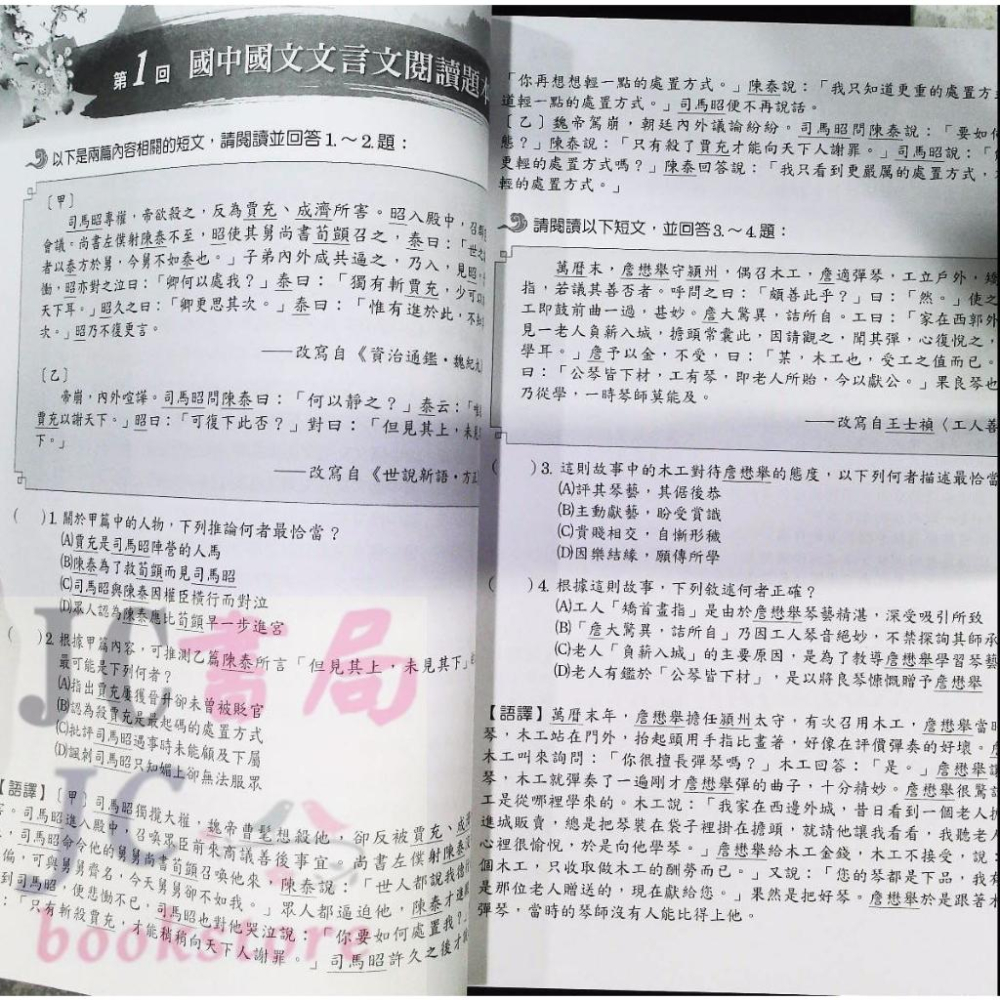 第1回 國中國文文言文閱讀題本
以下是兩篇內容相關的短文，請閱讀並回答1.～2.題：
〔甲〕
司馬昭專權，帝欲殺之，反為賈充、成濟所害。昭入殿中，召
會議。尚書左僕射陳泰不至，昭使其舅尚書荀顗召之，泰曰：「世之
者以泰方於舅，今舅不如泰也。」子弟內外咸共逼之，乃入，見昭，
慟，昭亦對之泣曰：「卿何以處我？」泰曰：「獨有斬賈充，少可以
天下耳。」昭久之曰：「卿更思其次。」泰曰：「惟有進於此，不
次。」昭乃不復更言。
——改寫自《資治通鑑·魏紀
〔乙〕
帝崩，內外喧譁。司馬昭問陳泰曰：「何以靜之？」泰云：「
賈充以謝天下。」昭曰：「可復下此否？」對曰：「但見其上，未
下。」
——改寫自《世說新語·方正
(　)1. 關於甲篇中的人物，下列推論何者最恰當？
(A)賈充是司馬昭陣營的人馬
(B)陳泰為了救荀顗而見司馬昭
(C)司馬昭與陳泰因權臣橫行而對泣
(D)眾人認為陳泰應比荀顗早一步進宮
(　)2. 根據甲篇內容，可推測乙篇陳泰所言「但見其上，未見其下」
最可能是下列何者？
(A)指出賈充屢獲晉升卻未曾被貶官
(B)認為殺賈充是最起碼的處置方式
(C)批評司馬昭遇事時未能顧及下屬
(D)諷刺司馬昭只知媚上卻無法服眾
【語譯】〔甲〕司馬昭獨攬大權，魏帝曹髦想殺他，卻反被賈充、成濟
害。司馬昭進入殿中，召喚眾臣前來商議善後事宜。尚書左僕射陳泰
，司馬昭命令他的舅舅尚書荀顗召喚他來，陳泰說：「世人都說我
偏，可與舅舅齊名，今天舅舅卻不如我。」眾人都逼迫他，陳泰才進
到司馬昭，便悲慟不已，司馬昭也對他哭泣說：「你要如何處置我？」
：「只有斬殺賈充，才能稍稍向天下人謝罪。」司馬昭許久之後才
「你再想想輕一點的處置方式。」陳泰說：「我只知道更重的處置方
道輕一點的處置方式。」司馬昭便不再說話。
〔乙〕魏帝駕崩，朝廷內外議論紛紛。司馬昭問陳泰說：「要如
態？」陳泰說：「只有殺了賈充才能向天下人謝罪。」司馬昭說：「
更輕的處置方式嗎？」陳泰回答說：「我只看到更嚴厲的處置方式，
輕的處置方式。」
請閱讀以下短文，並回答3.～4.題：
萬曆末，詹懋舉守潁州，偶召木工，詹適彈琴，工立戶外，
指，若議其善否者。呼問之曰：「頗善此乎？」曰：「然。」使之
工即鼓前曲一過，甚妙。詹大驚異，詰所自。工曰：「家在西郭外
見一老人負薪入城，擔頭常囊此，因請觀之，聞其彈，心復悅之，
學耳。」詹予以金，不受，曰：「某，木工也，受工之值而已。
曰：「公琴皆下材，工有琴，即老人所貽，今以獻公。」果良琴也
乃從學，一時琴師莫能及。
——改寫自王士禎〈工人善
(　)3. 這則故事中的木工對待詹懋舉的態度，以下列何者描述最恰當
(A)評其琴藝，其倨後恭
(B)主動獻藝，盼受賞識
(C)貴賤相交，自慚形穢
(D)因樂結緣，願傳所學
(　)4. 根據這則故事，下列敘述何者正確？
(A)工人「矯首畫指」是由於詹懋舉琴藝精湛，深受吸引所致
(B)「詹大驚異，詰所自」乃因工人琴音絕妙，不禁探詢其師承
(C)老人「負薪入城」的主要原因，是為了教導詹懋舉學習琴藝
(D)老人有鑑於「公琴皆下材」，是以將良琴慷慨贈予詹懋舉
【語譯】萬曆末年，詹懋舉擔任潁州太守，有次召用木工，詹懋舉當時
琴，木工站在門外，抬起頭用手指比畫著，好像在評價彈奏的好壞。
木工叫來詢問：「你很擅長彈琴嗎？」木工回答：「是。」詹懋舉
琴，木工就彈奏了一遍剛才詹懋舉彈的曲子，十分精妙。詹懋舉很驚
工是從哪裡學來的。木工說：「我家在西邊外城，昔日看到一個老人
進城販賣，總是把琴裝在袋子裡掛在擔頭，就請他讓我看看，我聽老人
心裡很愉悅，於是向他學琴。」詹懋舉給木工金錢，木工不接受，說：
個木工，只收取做木工的酬勞而已。」又說：「您的琴都是下品，我有
是那位老人贈送的，現在獻給您。」果然是把好琴。詹懋舉於是跟著木
彈琴，當時的琴師沒有人能比得上他。
JC書局
bookstore